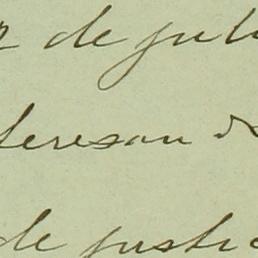 de juli
teresan
de justic